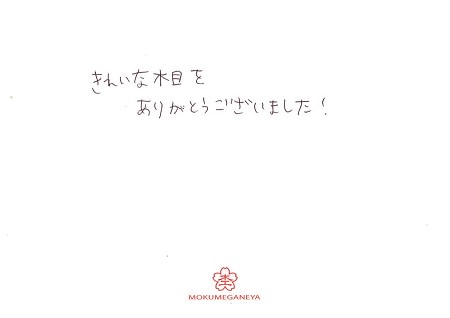 きれいな木目を
ありがとうございました!
杢
MOKUMEGANEYA